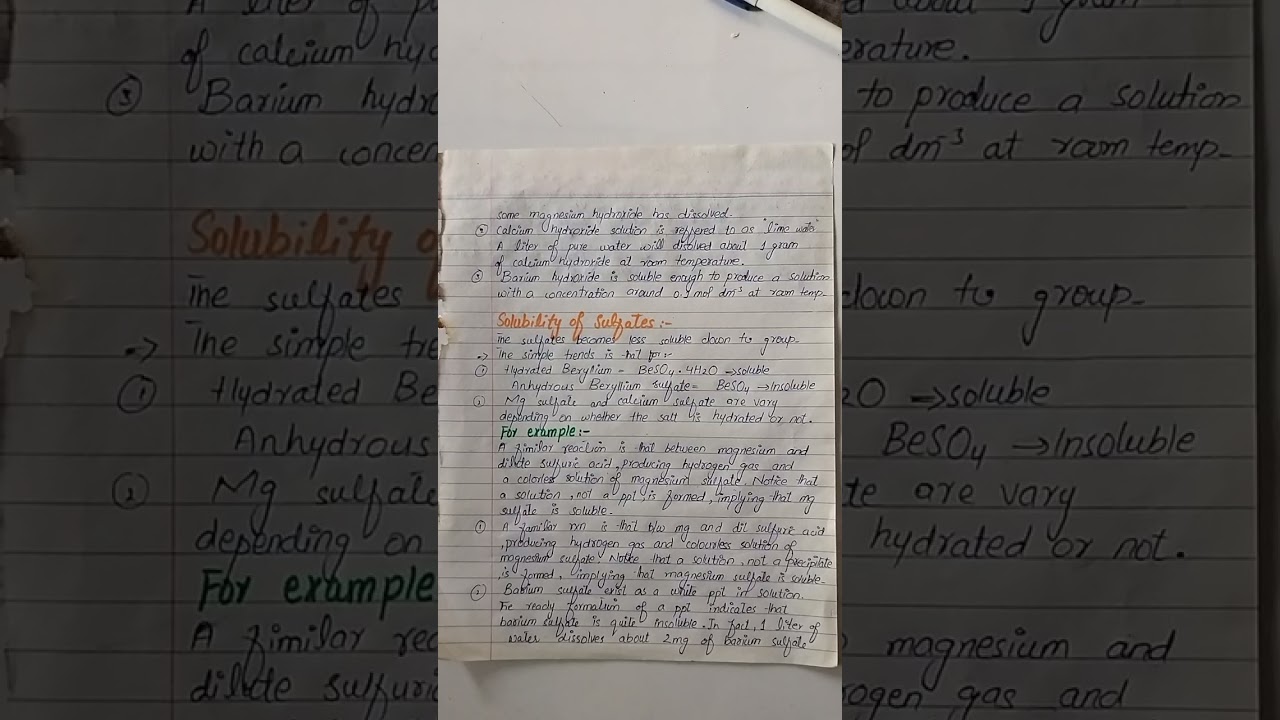 some magnesium hydroxide has dissolved.
② Calcium hydroxide solution is reffered to as "lime water"
A liter of pure water will disolved about 1 gram
of calcium hydroxide at room temperature.
③ Barium hydroxide is soluble enough to produce a solution
with a concentration around 0.1 mol dm⁻³ at room temp-
Solubility of Sulfates:-
The sulfates becomes less soluble down to group-
-> The simple trends is that for:-
① Hydrated Berylium - BeSO₄·4H₂O →soluble
Anhydrous Beryllium sulfate= BeSO₄ →Insoluble
② Mg sulfate and calcium sulfate are vary
depending on whether the salt is hydrated or not.
For example:-
A fimilar reaction is that between magnesium and
dilute sulfuric acid, producing hydrogen gas and
a colorless solution of magnesium sulfate. Notice that
a solution, not a ppt is formed, implying that mg
sulfate is soluble.
① A familar rxn is that b/w mg and dil sulfuric acid
,producing hydrogen gas and colourless solution of
magnesium sulfate. Notice that a solution, not a precipitate
,is formed, implying that magnesium sulfate is soluble.
② Barium sulfate exist as a white ppt in solution.
The ready formation of a ppt indicates that
barium sulfate is quite insoluble. In fact, 1 liter of
water dissolves about 2mg of barium sulfate